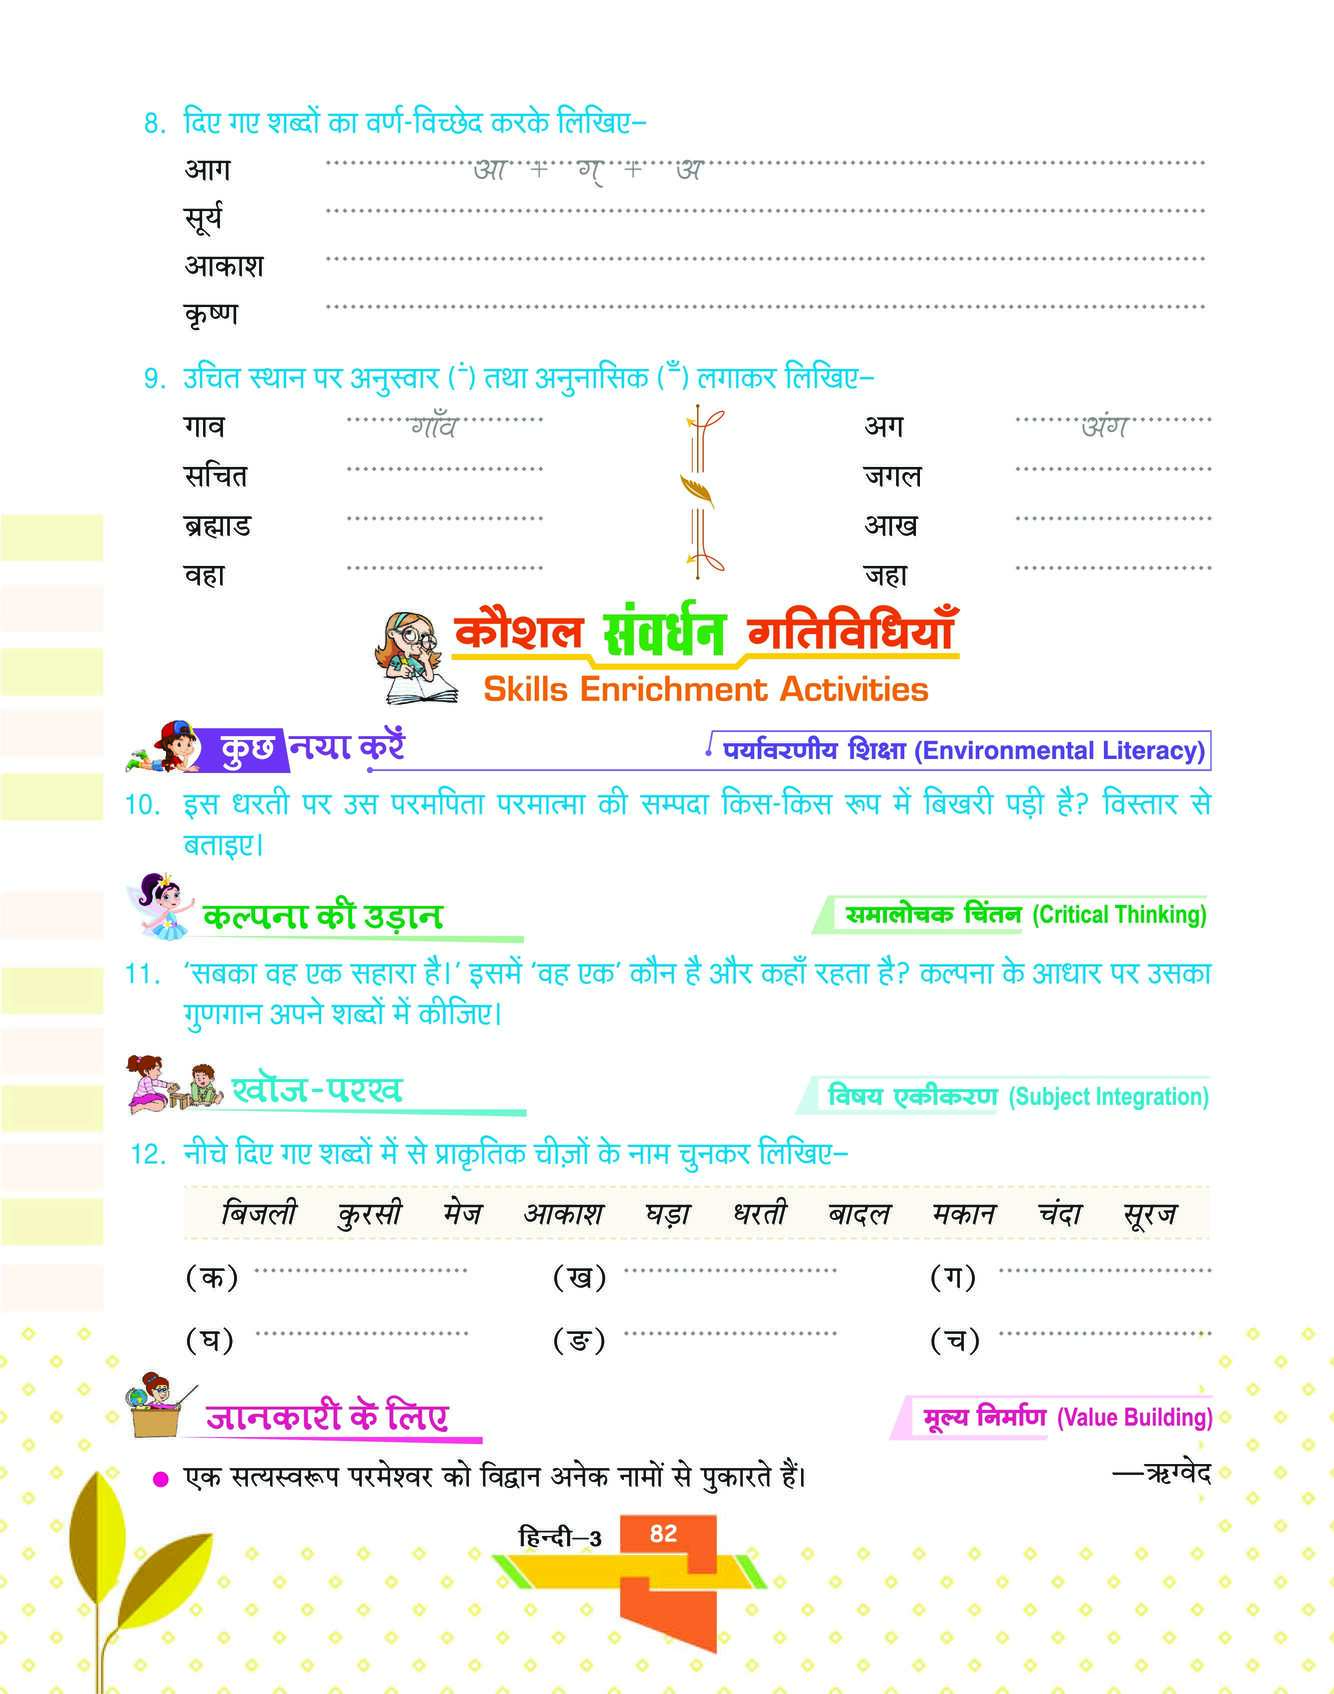 8. दिए गए शब्दों का वर्ण-विच्छेद करके लिखिए–
आग आ + ग् + अ
सूर्य
आकाश
कृष्ण
9. उचित स्थान पर अनुस्वार (ं) तथा अनुनासिक (ँ) लगाकर लिखिए–
गाव गाँव अग अंग
सचित जगल
ब्रह्माड आख
वहा जहा
कौशल संवर्धन गतिविधियाँ
Skills Enrichment Activities
कुछ नया करें पर्यावरणीय शिक्षा (Environmental Literacy)
10. इस धरती पर उस परमपिता परमात्मा की सम्पदा किस-किस रूप में बिखरी पड़ी है? विस्तार से
बताइए।
कल्पना की उड़ान समालोचक चिंतन (Critical Thinking)
11. ‘सबका वह एक सहारा है।’ इसमें ‘वह एक’ कौन है और कहाँ रहता है? कल्पना के आधार पर उसका
गुणगान अपने शब्दों में कीजिए।
खोज-परख विषय एकीकरण (Subject Integration)
12. नीचे दिए गए शब्दों में से प्राकृतिक चीज़ों के नाम चुनकर लिखिए–
बिजली कुरसी मेज आकाश घड़ा धरती बादल मकान चंदा सूरज
(क) (ख) (ग)
(घ) (ङ) (च)
जानकारी के लिए मूल्य निर्माण (Value Building)
● एक सत्यस्वरूप परमेश्वर को विद्वान अनेक नामों से पुकारते हैं। —ऋग्वेद
हिन्दी–3 82